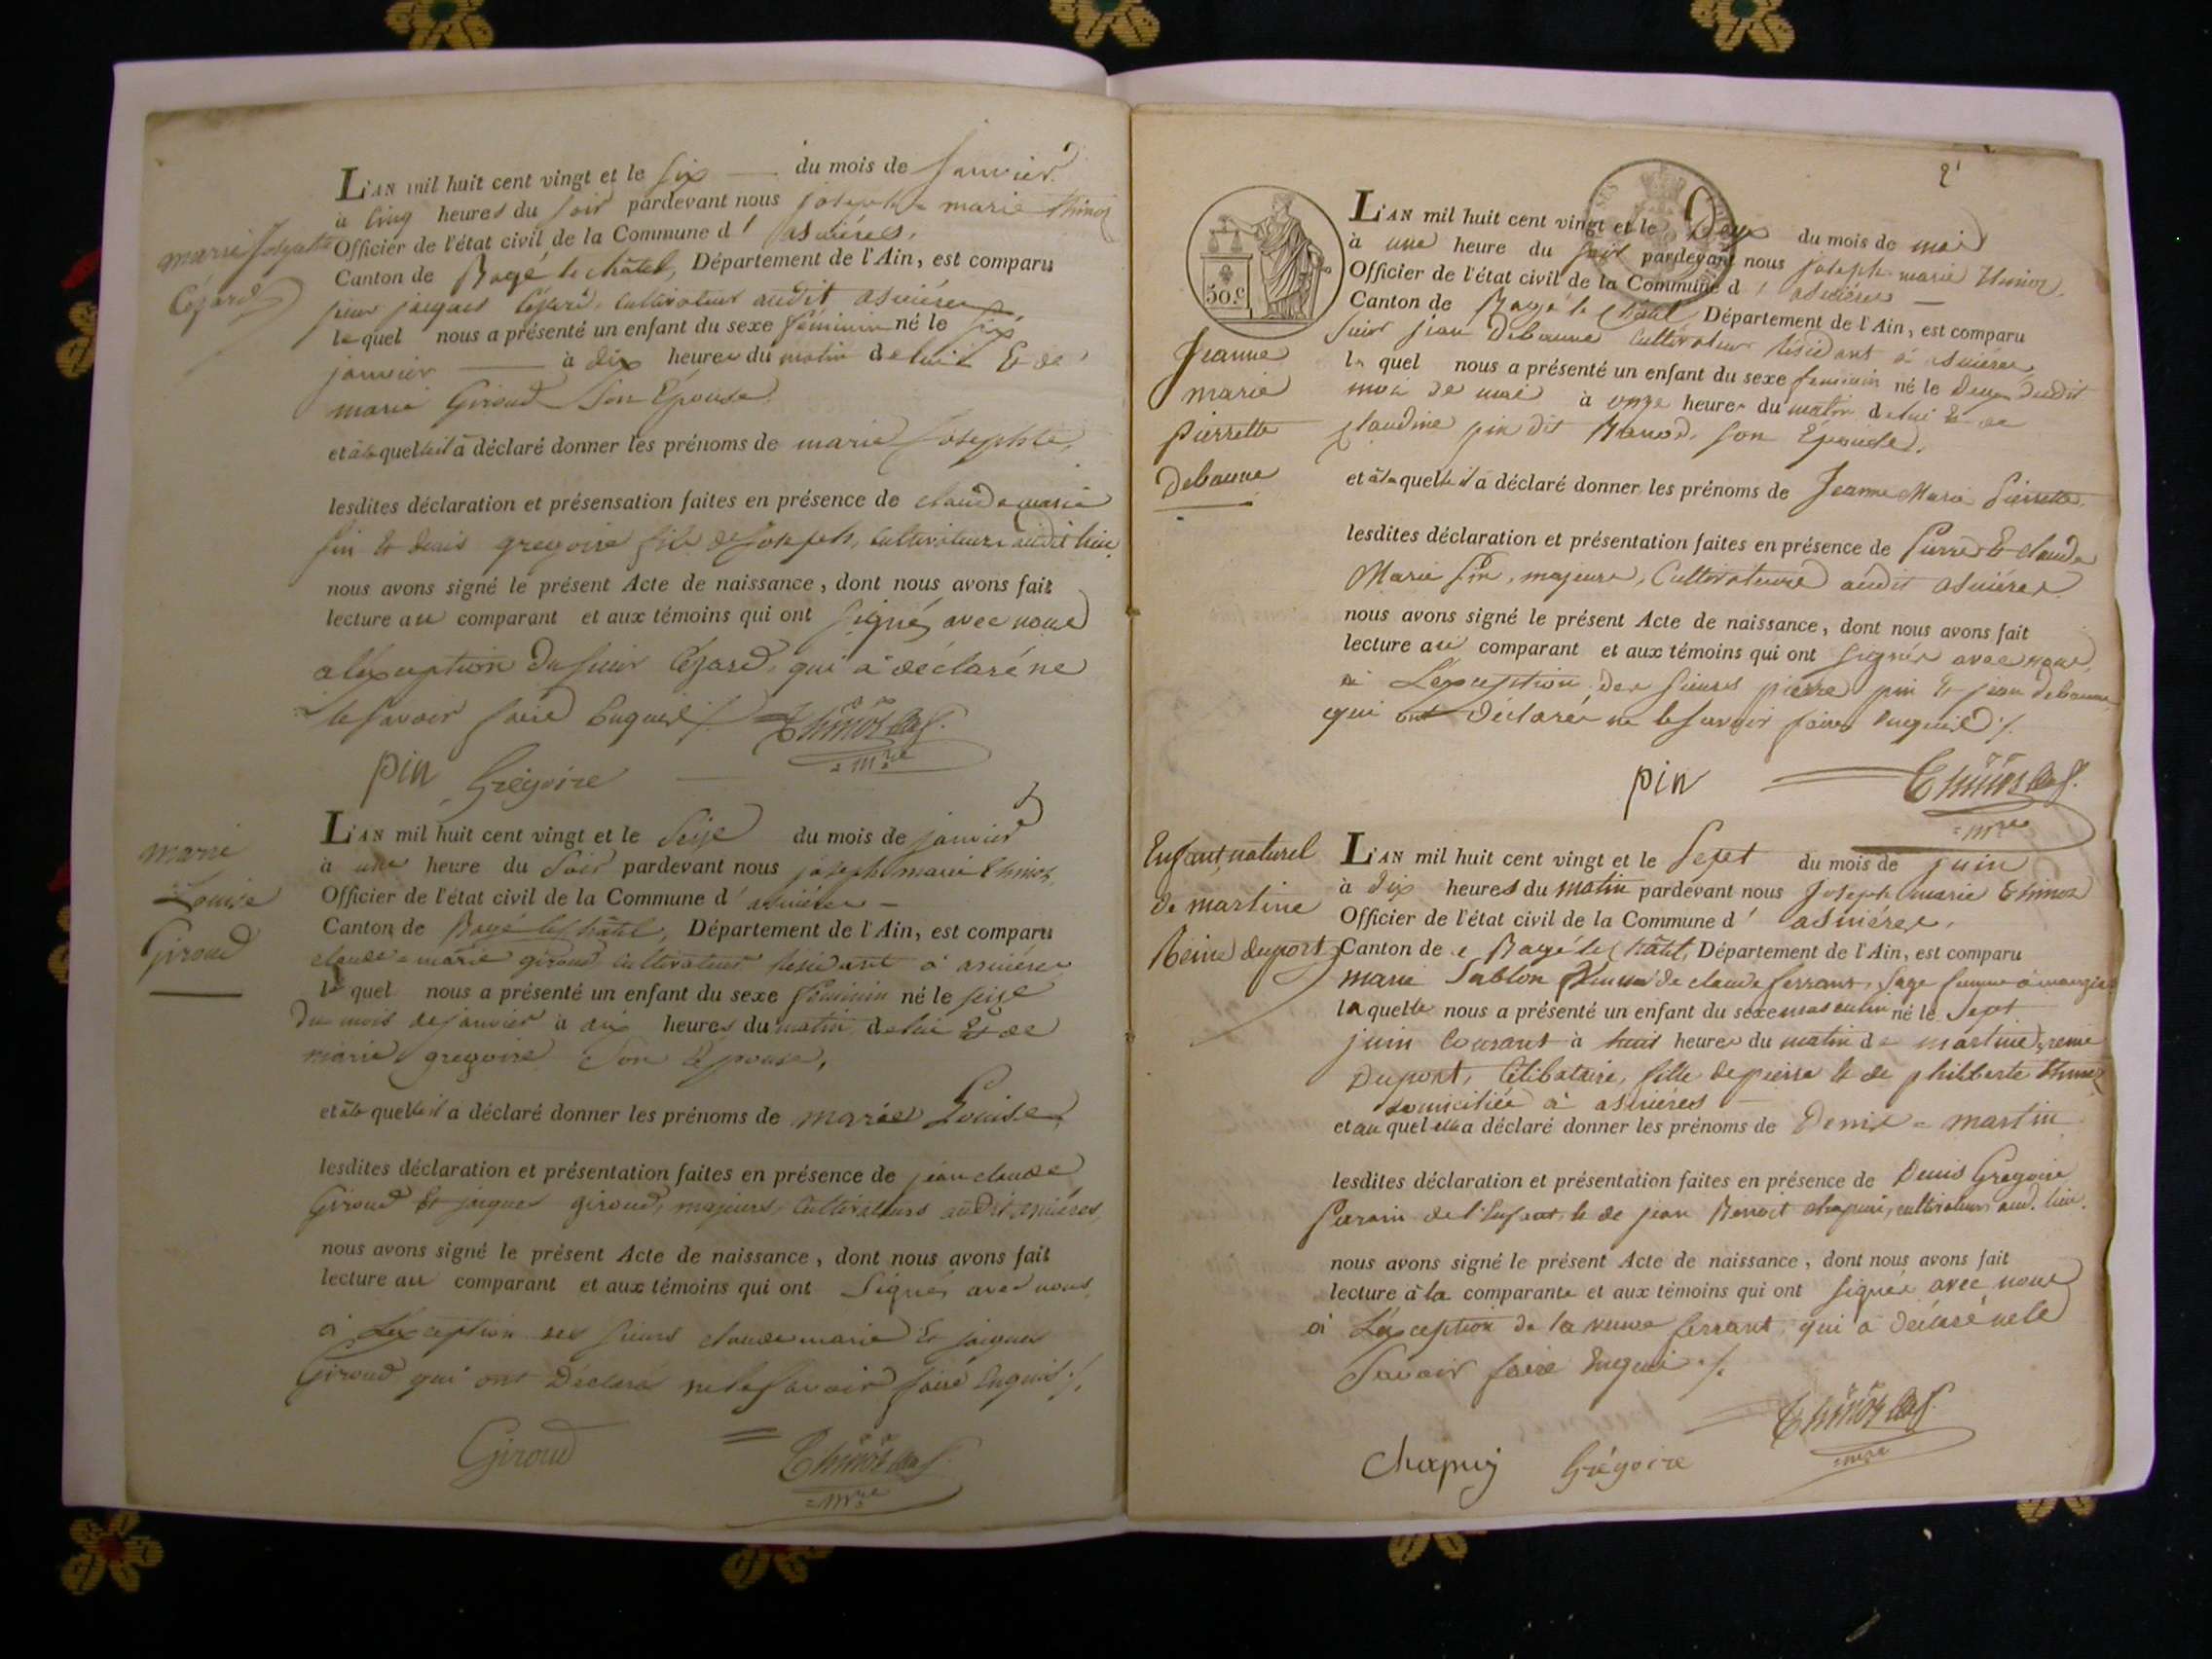 marie Josephte
Cézard
L'AN mil huit cent vingt et le six du mois de Janvier
à cinq heures du soir pardevant nous joseph = marie thinoz
Officier de l'état civil de la Commune d' asnières,
Canton de Bagé le châtel, Département de l'Ain, est comparu
sieur jacques Cézard, cultivateur audit asnières,
lequel nous a présenté un enfant du sexe féminin né le six
janvier à dix heures du matin de lui & de
marie Giroud Son Epouse
et à la quelle il a déclaré donner les prénoms de marie Josephte,
lesdites déclaration et présensation faites en présence de claude marie
pin & denis gregoire fils de Joseph, cultivateurs audit lieu
nous avons signé le présent Acte de naissance, dont nous avons fait
lecture au comparant et aux témoins qui ont signés avec nous
a l'exception du sieur Cézard, qui a déclaré ne
le savoir faire Enquis ./.
pin Grégoire
mre
marie
Louise
Giroud
L'AN mil huit cent vingt et le Seize du mois de janvier
à une heure du Soir pardevant nous joseph marie thinoz,
Officier de l'état civil de la Commune d' asnières =
Canton de Bagé le châtel, Département de l'Ain, est comparu
claude = marie giroud cultivateur résidant à asnières
le quel nous a présenté un enfant du sexe féminin né le seize
du mois de janvier à dix heures du matin de lui & de
marie gregoire Son Epouse,
et à la quelle il a déclaré donner les prénoms de marie Louise,
lesdites déclaration et présentation faites en présence de jean claude
Giroud & jacques giroud, majeurs, cultivateurs audit asnières,
nous avons signé le présent Acte de naissance, dont nous avons fait
lecture au comparant et aux témoins qui ont Signés avec nous,
à L'exception des sieurs claude marie & jacques
Giroud qui ont Déclaré ne le savoir faire Enquis ./.
Giroud
mre
2
50 c
Jeanne
marie
pierrette
Debaune
L'AN mil huit cent vingt et le Deux du mois de mai
à une heure du soir pardevant nous joseph marie thinoz
Officier de l'état civil de la Commune d' asnières
Canton de Bagé le Châtel Département de l'Ain, est comparu
sieur jean Debaune cultivateur résidant à asnières
le quel nous a présenté un enfant du sexe féminin né le Deux dudit
mois de mai à onze heures du matin de lui & de
claudine pin dit Banod, son Epouse,
et à la quelle il a déclaré donner les prénoms de Jeanne Marie Pierrette
lesdites déclaration et présentation faites en présence de Pierre & claude
Marie pin, majeurs, Cultivateurs audit asnières
nous avons signé le présent Acte de naissance, dont nous avons fait
lecture au comparant et aux témoins qui ont signés avec nous,
à L'exception des sieurs pierre pin & jean debaune
qui ont déclarés ne le savoir faire enquis ./.
pin
mre
Enfant naturel
de martine
Reine duport
L'AN mil huit cent vingt et le Sept du mois de juin
à dix heures du matin pardevant nous Joseph marie thinoz
Officier de l'état civil de la Commune d' asnières,
Canton de Bagé le Châtel, Département de l'Ain, est comparu
marie Sablon veuve de claude ferrant, sage femme à
laquelle nous a présenté un enfant du sexe masculin né le Sept
juin courant à huit heures du matin de martine, reine
Duport, Célibataire, fille de pierre & de philiberte thinoz
domiciliée à asnières
et au quel elle a déclaré donner les prénoms de Denis = martin
lesdites déclaration et présentation faites en présence de Denis Gregoire
parain de l'Enfant, & de jean Benoit chapuis, cultivateurs aud. lieu.
nous avons signé le présent Acte de naissance, dont nous avons fait
lecture à la comparante et aux témoins qui ont signés avec nous
à L'exception de la veuve ferrant, qui a déclaré ne le
Savoir faire Enquis ./.
Chapuy Grégoire
mre